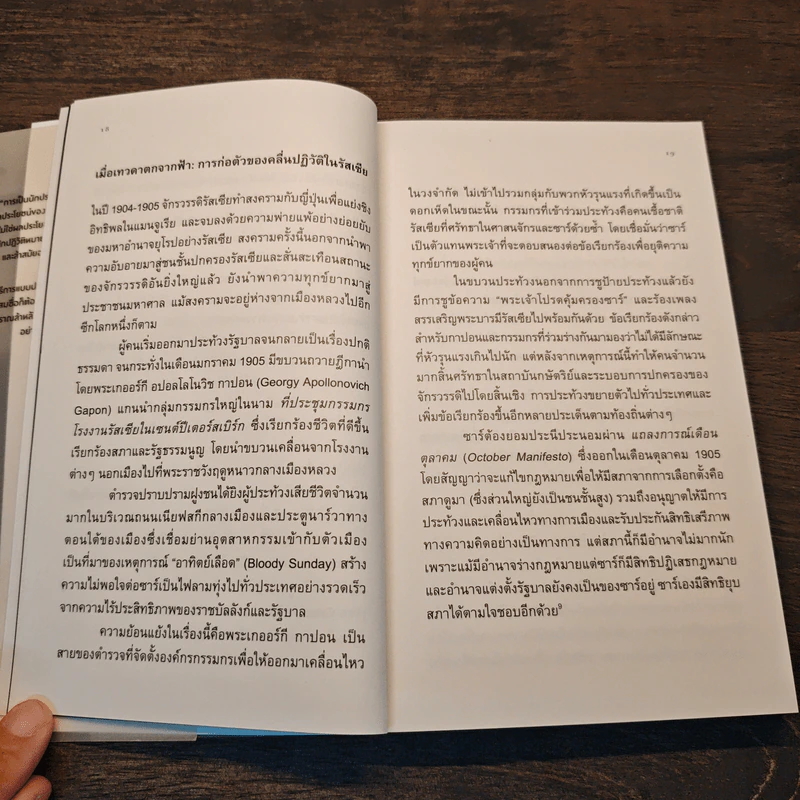 "การเป็นนักปร
๑๖
เมื่อเทวดาตกจากฟ้า: การก่อตัวของคลื่นปฏิวัติในรัสเซีย
ในปี 1904-1905 จักรวรรดิรัสเซียทำสงครามกับญี่ปุ่นเพื่อแย่งชิง
อิทธิพลในแมนจูเรีย และจบลงด้วยความพ่ายแพ้อย่างย่อยยับ
ของมหาอำนาจยุโรปอย่างรัสเซีย สงครามครั้งนี้นอกจากนำพา
ความอับอายมาสู่ชนชั้นปกครองรัสเซียและสั่นสะเทือนสถานะ
ของจักรวรรดิอันยิ่งใหญ่แล้ว ยังนำพาความทุกข์ยากมาสู่
ประชาชนมหาศาล แม้สงครามจะอยู่ห่างจากเมืองหลวงไปอีก
ซีกโลกหนึ่งก็ตาม
ผู้คนเริ่มออกมาประท้วงรัฐบาลจนกลายเป็นเรื่องปกติ
ธรรมดา จนกระทั่งในเดือนมกราคม 1905 มีขบวนถวายฎีกานำ
โดยพระเกออร์กี อปอลโลโนวิช กาปอน (Georgy Apollonovich
Gapon) แกนนำกลุ่มกรรมกรใหญ่ในนาม ที่ประชุมกรรมกร
โรงงานรัสเซียในเซนต์ปีเตอร์สเบิร์ก ซึ่งเรียกร้องชีวิตที่ดีขึ้น
เรียกร้องสภาและรัฐธรรมนูญ โดยนำขบวนเคลื่อนจากโรงงาน
ต่างๆ นอกเมืองไปที่พระราชวังฤดูหนาวกลางเมืองหลวง
ตำรวจปราบปรามฝูงชนได้ยิงผู้ประท้วงเสียชีวิตจำนวน
มากในบริเวณถนนเนียฟสกีกลางเมืองและประตูนาร์วาทาง
ตอนใต้ของเมืองซึ่งเชื่อมย่านอุตสาหกรรมเข้ากับตัวเมือง
เป็นที่มาของเหตุการณ์ "อาทิตย์เลือด" (Bloody Sunday) สร้าง
ความไม่พอใจต่อซาร์เป็นไฟลามทุ่งไปทั่วประเทศอย่างรวดเร็ว
จากความไร้ประสิทธิภาพของราชบัลลังก์และรัฐบาล
ความย้อนแย้งในเรื่องนี้คือพระเกออร์กี กาปอน เป็น
สายของตำรวจที่จัดตั้งองค์กรกรรมกรเพื่อให้ออกมาเคลื่อนไหว
๑๗
ในวงจำกัด ไม่เข้าไปรวมกลุ่มกับพวกหัวรุนแรงที่เกิดขึ้นเป็น
ดอกเห็ดในขณะนั้น กรรมกรที่เข้าร่วมประท้วงคือคนเชื้อชาติ
รัสเซียที่ศรัทธาในศาสนจักรและซาร์ด้วยซ้ำ โดยเชื่อมั่นว่าซาร์
เป็นตัวแทนพระเจ้าที่จะตอบสนองต่อข้อเรียกร้องเพื่อยุติความ
ทุกข์ยากของผู้คน
ในขบวนประท้วงนอกจากการชูป้ายประท้วงแล้วยัง
มีการชูข้อความ "พระเจ้าโปรดคุ้มครองซาร์" และร้องเพลง
สรรเสริญพระบารมีรัสเซียไปพร้อมกันด้วย ข้อเรียกร้องดังกล่าว
สำหรับกาปอนและกรรมกรที่ร่วมร่างกันมามองว่าไม่ได้มีลักษณะ
ที่หัวรุนแรงเกินไปนัก แต่หลังจากเหตุการณ์นี้ทำให้คนจำนวน
มากสิ้นศรัทธาในสถาบันกษัตริย์และระบอบการปกครองของ
จักรวรรดิไปโดยสิ้นเชิง การประท้วงขยายตัวไปทั่วประเทศและ
เพิ่มข้อเรียกร้องขึ้นอีกหลายประเด็นตามท้องถิ่นต่างๆ
ซาร์ต้องยอมประนีประนอมผ่าน แถลงการณ์เดือน
ตุลาคม (October Manifesto) ซึ่งออกในเดือนตุลาคม 1905
โดยสัญญาว่าจะแก้ไขกฎหมายเพื่อให้มีสภาจากการเลือกตั้งคือ
สภาดูมา (ซึ่งส่วนใหญ่ยังเป็นชนชั้นสูง) รวมถึงอนุญาตให้มีการ
ประท้วงและเคลื่อนไหวทางการเมืองและรับประกันสิทธิเสรีภาพ
ทางความคิดอย่างเป็นทางการ แต่สภานี้ก็มีอำนาจไม่มากนัก
เพราะแม้มีอำนาจร่างกฎหมายแต่ซาร์ก็มีสิทธิปฏิเสธกฎหมาย
และอำนาจแต่งตั้งรัฐบาลยังคงเป็นของซาร์อยู่ ซาร์เองมีสิทธิยุบ
สภาได้ตามใจชอบอีกด้วย⁹